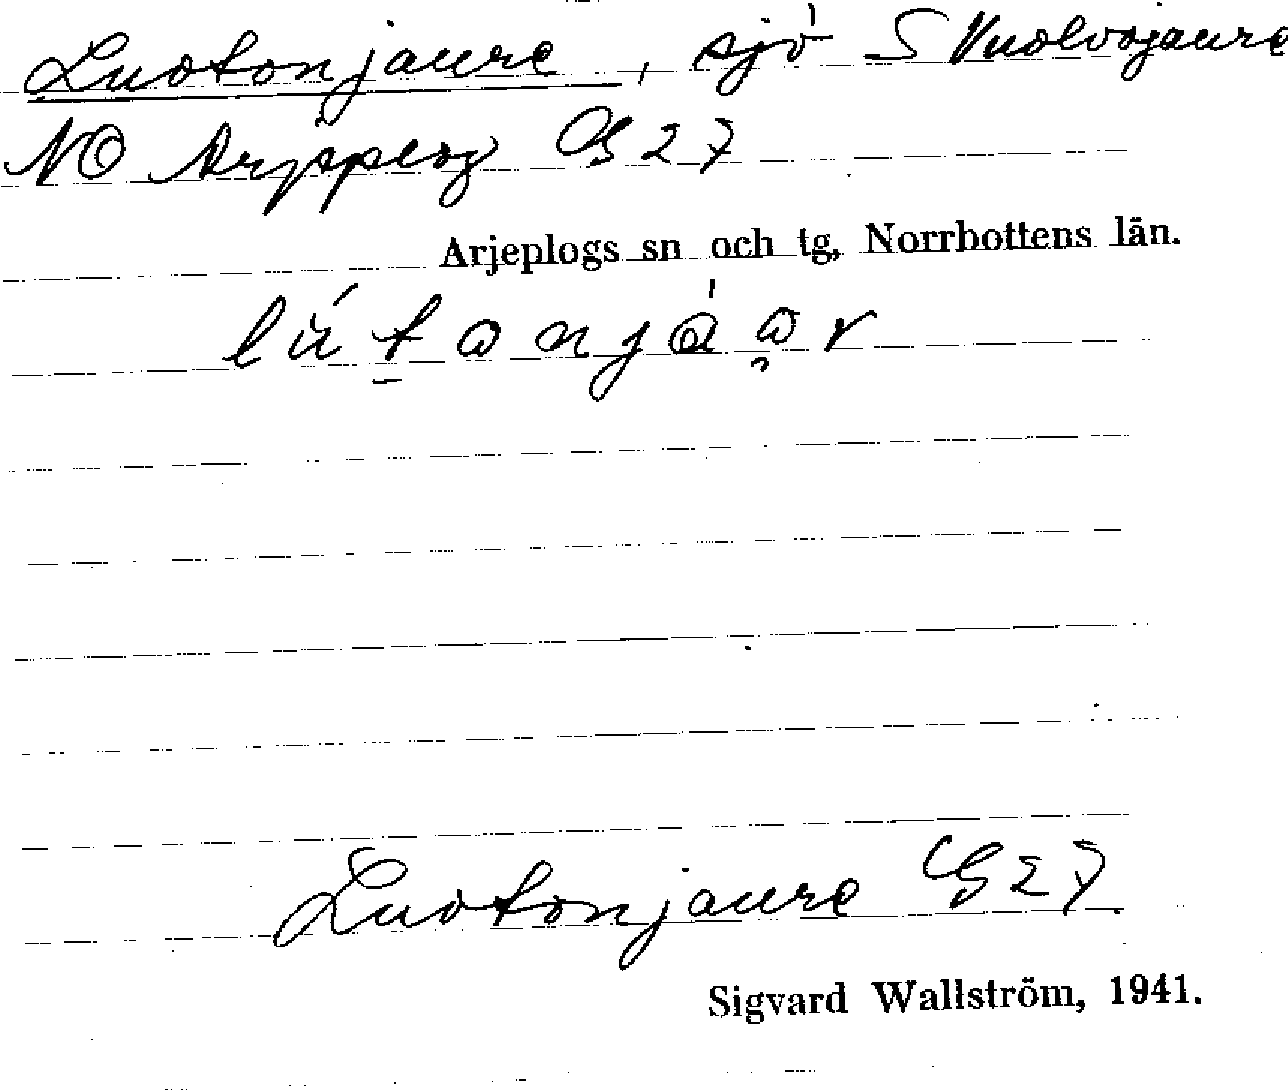 Luotonjaure, sjö S Vuolvojaure
NO Arjeplog G 27
Arjeplogs sn och tg, Norrbottens län.
Luotonjaure G 27
Sigvard Wallström, 1941.